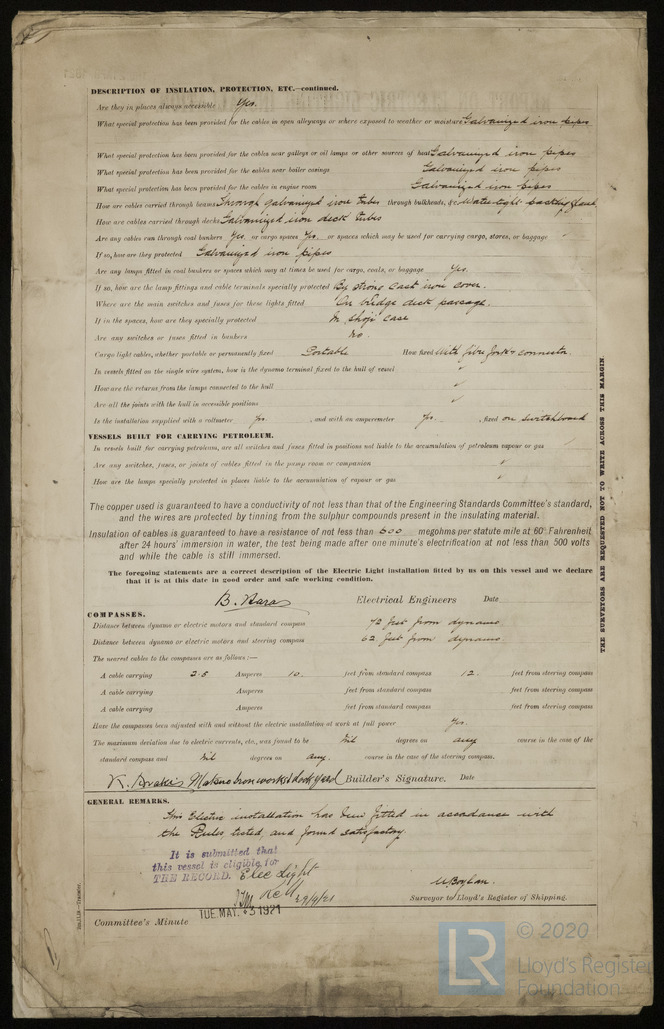 DESCRIPTION OF INSULATION, PROTECTION, ETC.—continued.
Are they in places always accessible Yes.
What special protection has been provided for the cables in open alleyways or where exposed to weather or moisture Galvanized iron pipes
What special protection has been provided for the cables near galleys or oil lamps or other sources of heat Galvanized iron pipes
What special protection has been provided for the cables near boiler casings Galvanized iron pipes
What special protection has been provided for the cables in engine room Galvanized iron pipes
How are cables carried through beams Through galvanized iron tubes through bulkheads, &c. Water-tight packing gland
How are cables carried through decks Galvanized iron deck tubes
Are any cables run through coal bunkers Yes. or cargo spaces Yes. or spaces which may be used for carrying cargo, stores, or baggage
If so, how are they protected Galvanized iron pipes
Are any lamps fitted in coal bunkers or spaces which may at times be used for cargo, coals, or baggage Yes.
If so, how are the lamp fittings and cable terminals specially protected By strong cast iron cover.
Where are the main switches and fuses for these lights fitted On bridge deck passage.
If in the spaces, how are they specially protected In shoji case
Are any switches or fuses fitted in bunkers No.
Cargo light cables, whether portable or permanently fixed Portable How fixed With fibre connector
In vessels fitted on the single wire system, how is the dynamo terminal fixed to the hull of vessel ✓
How are the returns from the lamps connected to the hull ✓
Are all the joints with the hull in accessible positions ✓
Is the installation supplied with a voltmeter Yes. , and with an amperemeter Yes. , fixed on switchboard
VESSELS BUILT FOR CARRYING PETROLEUM.
In vessels built for carrying petroleum, are all switches and fuses fitted in positions not liable to the accumulation of petroleum vapour or gas
Are any switches, fuses, or joints of cables fitted in the pump room or companion
How are the lamps specially protected in places liable to the accumulation of vapour or gas
The copper used is guaranteed to have a conductivity of not less than that of the Engineering Standards Committee's standard,
and the wires are protected by tinning from the sulphur compounds present in the insulating material.
Insulation of cables is guaranteed to have a resistance of not less than 600 megohms per statute mile at 60° Fahrenheit
after 24 hours' immersion in water, the test being made after one minute's electrification at not less than 500 volts
and while the cable is still immersed.
The foregoing statements are a correct description of the Electric Light installation fitted by us on this vessel and we declare
that it is at this date in good order and safe working condition.
B. Hara Electrical Engineers Date
COMPASSES.
Distance between dynamo or electric motors and standard compass 72 feet from dynamo
Distance between dynamo or electric motors and steering compass 62 feet from dynamo
The nearest cables to the compasses are as follows:—
A cable carrying 2.5 Amperes 10. feet from standard compass 12. feet from steering compass
A cable carrying Amperes feet from standard compass feet from steering compass
A cable carrying Amperes feet from standard compass feet from steering compass
Have the compasses been adjusted with and without the electric installation at work at full power Yes.
The maximum deviation due to electric currents, etc., was found to be Nil degrees on any course in the case of the
standard compass and Nil degrees on any. course in the case of the steering compass.
Builder's Signature. Date
GENERAL REMARKS.
This Electric installation has been fitted in accordance with
the Rules tested, and found satisfactory
It is submitted that
this vessel is eligible for
THE RECORD. Elec Light
29/4/21
Surveyor to Lloyd's Register of Shipping.
TUE. MAY. 3 1921
Committee's Minute
THE SURVEYORS ARE REQUESTED NOT TO WRITE ACROSS THIS MARGIN
LR
© 2020
Lloyd's Register
Foundation